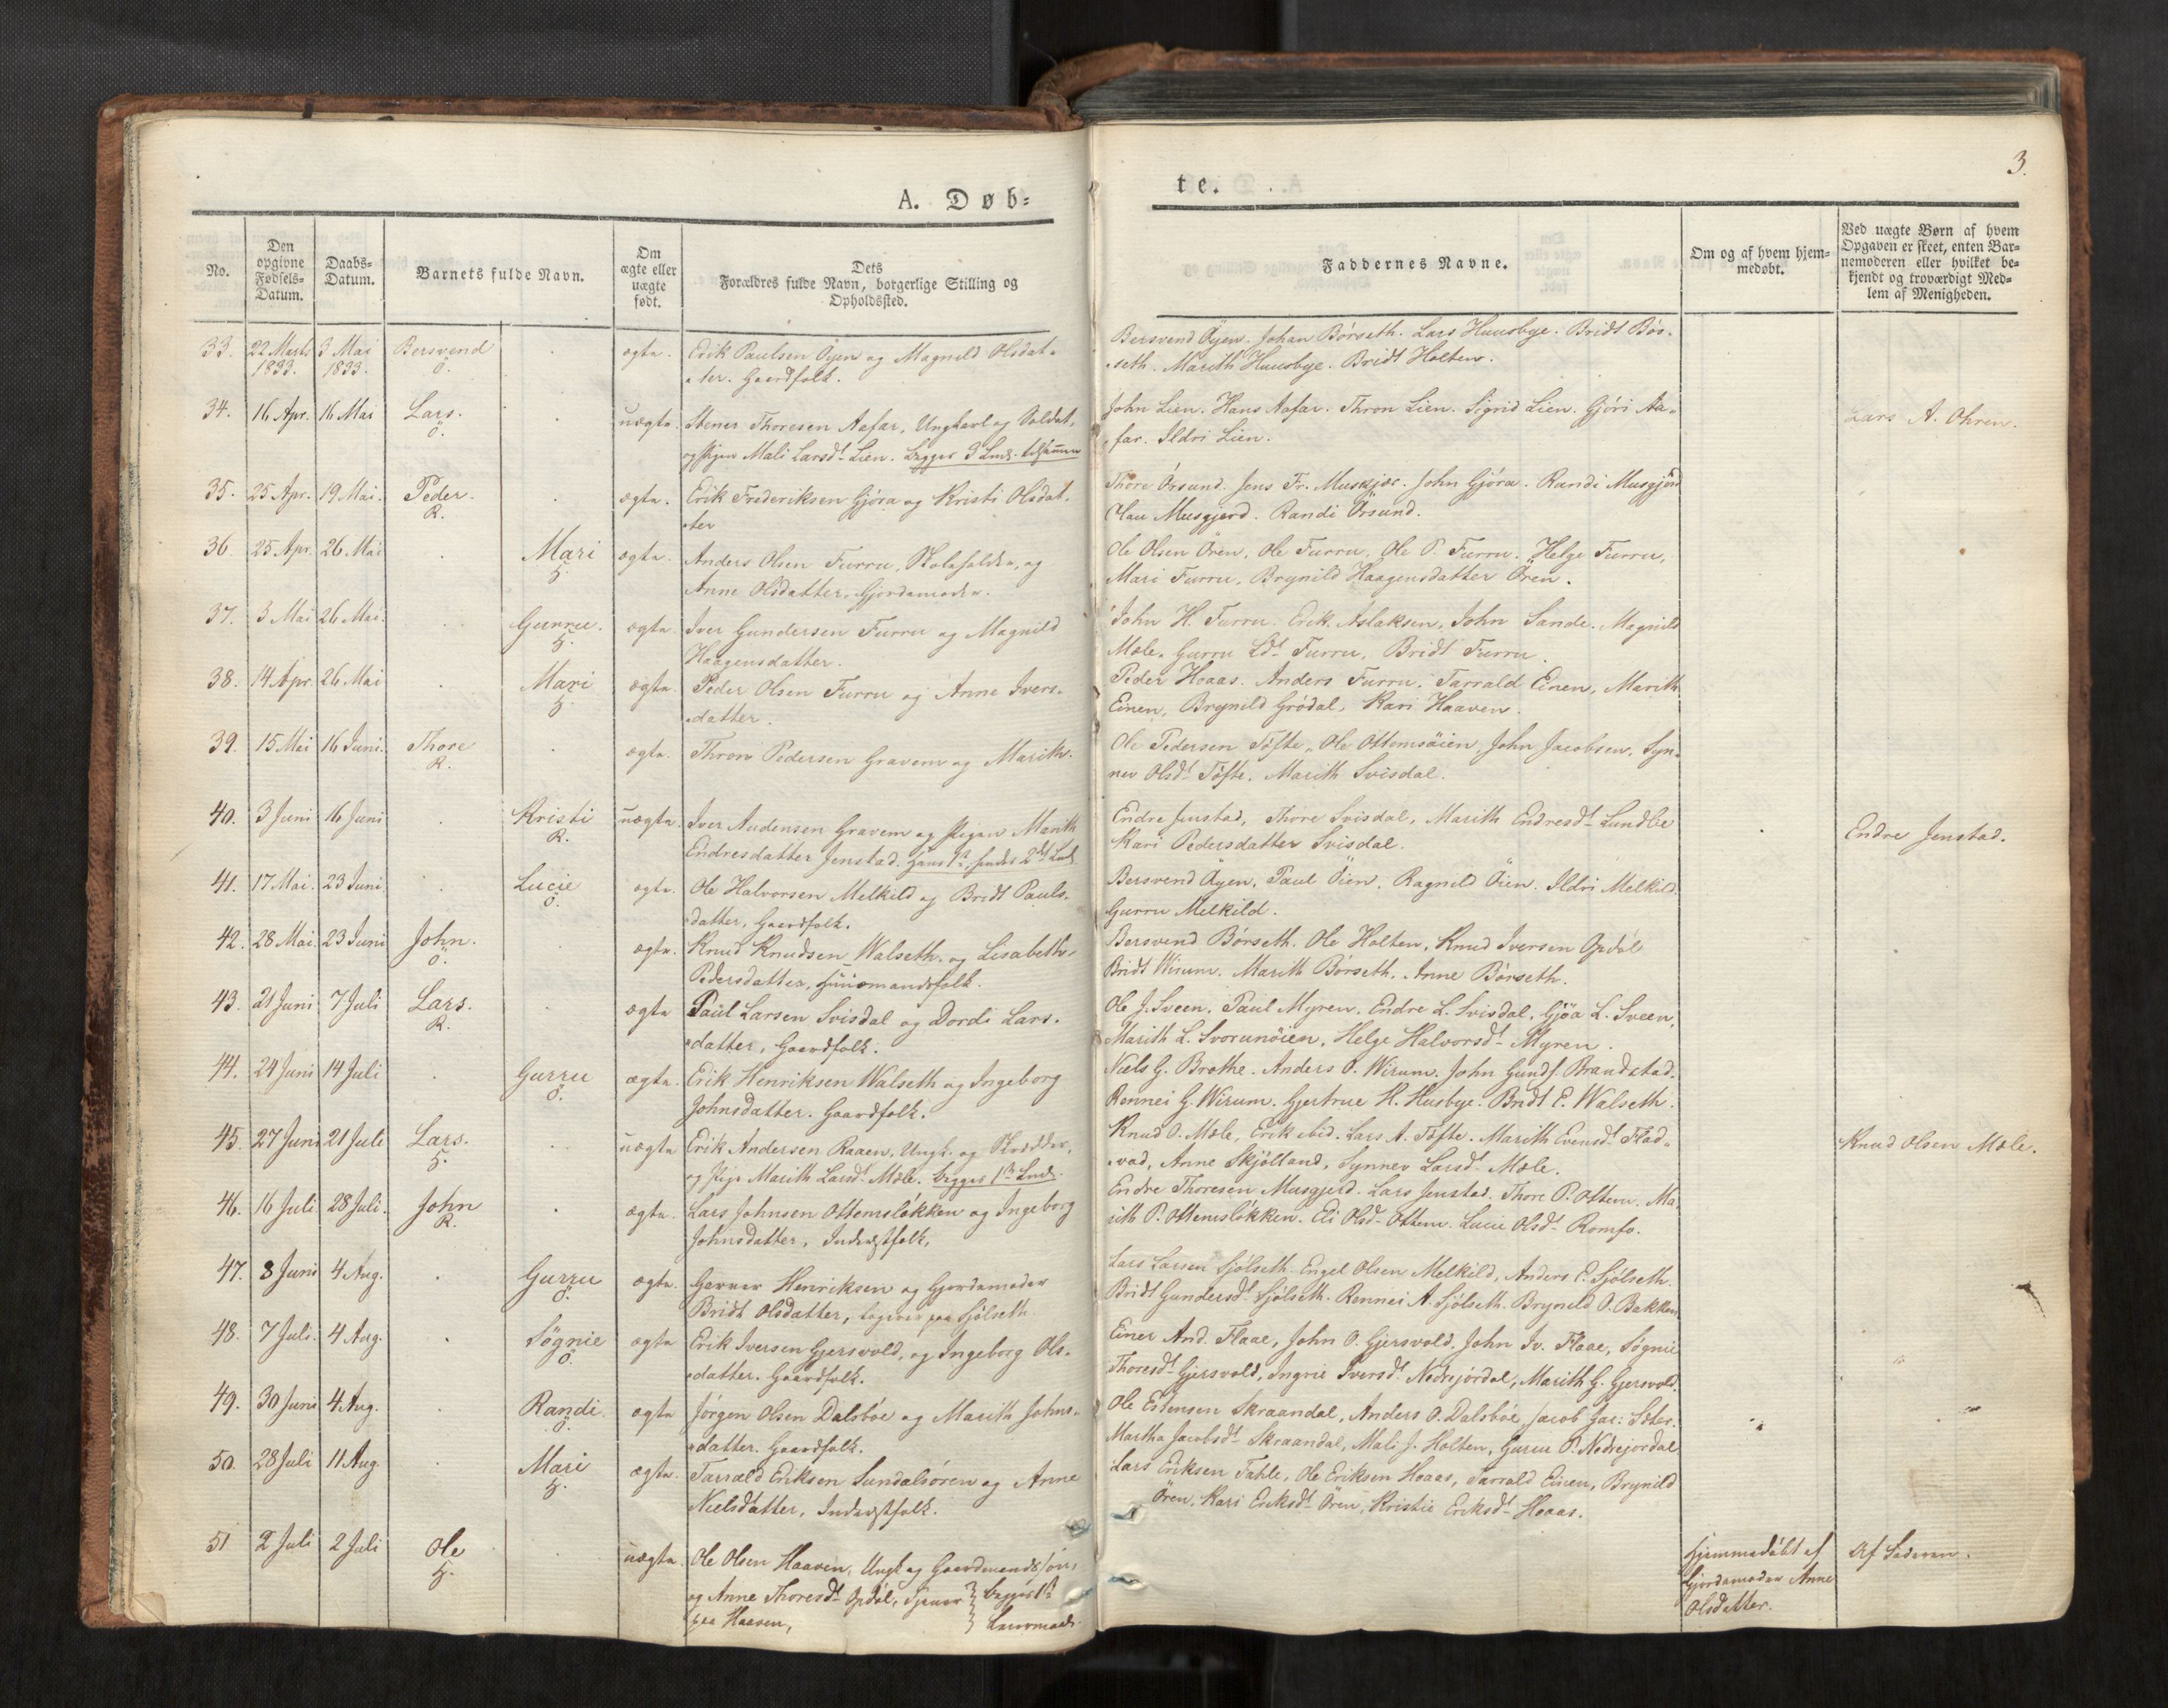 A. Døb-
te.
3.
No.
Den opgivne Fødsels-Datum.
Daabs-Datum.
Barnets fulde Navn.
Om ægte eller uægte født.
Dets Forældres fulde Navn, borgerlige Stilling og Opholdssted.
Faddernes Navne.
Om og af hvem hjem-medøbt.
Ved uægte Børn af hvem Opgaven er skeet, enten Bar-nemoderen eller hvilket be-kjendt og troværdigt Med-lem af Menigheden.
33. 22 Marts 1833. 3 Mai 1833. Bersvend Ö. ægte. Erik Paulsen Öyen og Magnild Olsdat-
ter. Gaardfolk.
Bersvend Öyen. Johan Börseth. Lars Huusbye. Bridt Bör-
seth. Marith Huusbye. Bridt Holten.
34. 16 Apr. 16 Mai Lars. Ö. uægte. Stener Thoresen Aafar, Ungkarl og Soldat,
og Pigen Mali Larsdt Lien. Begges 3 Leirm. tilsammen
John Lien. Hans Aafar. Thron Lien. Sigrid Lien. Gjöri Aa-
far. Ildri Lien.
Lars A. Ohren.
35. 25 Apr. 19 Mai. Peder. R. ægte. Erik Frederiksen Gjöra og Kristi Olsdat-
ter
Thore Örsund. Jens Fr. Musgjer. John Gjöra. Randi Musgjerd
Olau Musgjerd. Randi Örsund.
36. 25 Apr. 26 Mai Mari H. ægte. Anders Olsen Furru, Skoleholder, og
Anne Olsdatter, Gjordemoder.
Ole Olsen Ören, Ole Furru, Ole P. Furru. Helge Furru,
Mari Furru, Brynild Haagensdatter Ören.
37. 3 Mai 26 Mai. Gurru. H. ægte. Iver Gundersen Furru og Magnild
Haagensdatter.
John H. Furru. Erik Aslaksen, John Sande. Magnild
Mæle. Gurru Ldt Furru, Bridt Furru.
38. 14 Apr. 26 Mai Mari H. ægte. Peder Olsen Furru og Anne Ivers-
datter.
Peder Hoaas. Anders Furru. Tarrald Einen, Marith
Einen, Brynild Grödal, Kari Haaven.
39. 15 Mai 16 Juni. Thore R. ægte. Thron Pedersen Gravem og Marith.
Ole Pedersen Töfte, Ole Ottemsöien, John Jacobsen, Syn-
nev Olsdt Töfte. Marith Svisdal.
40. 3 Juni 16 Juni Kristi R. uægte. Iver Audensen Gravem og Pigen Marith
Endresdatter Jenstad. Hans 1ste, hendes 2det Leirm.
Endre Jenstad, Thore Svisdal, Marith Endresdt Lundlie
Kari Pedersdatter Svisdal.
Endre Jenstad.
41. 17 Mai. 23 Juni Lucie Ö. ægte. Ole Halvorsen Melkild og Bridt Pauls-
datter, Gaardfolk.
Bersvend Öyen, Paul Öien. Ragnild Öien. Ildri Melkild.
Gurru Melkild.
42. 28 Mai. 23 Juni John. Ö. ægte. Knud Knudsen Walseth og Lisabeth
Pedersdatter, Huusmandsfolk.
Bersvend Börseth. Ole Holten, Knud Iversen Opdöl
Bridt Wirum. Marith Börseth. Anne Börseth.
43. 21 Juni 7 Juli Lars. R. ægte Paul Larsen Svisdal og Dordi Lars-
datter, Gaardfolk.
Ole J. Sveen, Paul Myren, Endre L. Svisdal, Gjöa L. Sveen,
Marith L. Svorunöien, Helge Halvorsdt Myren.
44. 24 Juni 14 Juli Gurru Ö. ægte. Erik Henriksen Walseth og Ingeborg
Johnsdatter. Gaardfolk.
Niels G. Brothe. Anders O. Wirum. John Gunds. Brandstad.
Rennei G. Wirum. Gjertrue H. Husbye. Bridt E. Walseth.
45. 27 Juni 21 Juli Lars. H. uægte Erik Andersen Raaen, Ungk. og Skrædder,
og Pige Marith Larsdt Mæle. Begges 1ste Leirm.
Knud O. Mæle, Erik ibid. Lars A. Töfte. Marith Evensdt Flad-
vad, Anne Skjölland, Synnev Larsdt Mæle.
Knud Olsen Mæle.
46. 16 Juli 28 Juli. John R. ægte. Lars Johnsen Ottemslökken og Ingeborg
Johnsdatter, Inderstfolk.
Endre Thoresen Musgjerd. Lars Jenstad. Thore P. Ottem. Ma-
rith P. Ottemslökken. Eli Olsdt Ottem. Lucie Olsdt Romfo.
47. 8 Juni 4 Aug. Gurru Ö. ægte. Gunner Henriksen og Gjordemoder
Bridt Olsdatter, logerer paa Sjölseth.
Lars Larsen Sjölseth. Engel Olsen Melkild, Anders E. Sjölseth.
Bridt Gundersdt Sjölseth. Rennei A. Sjölseth. Brynild O. Bakken
48. 7 Juli. 4 Aug. Sögnie Ö. ægte Erik Iversen Gjersvold, og Ingeborg Ols-
datter. Gaardfolk.
Einer And. Flaae, John O. Gjersvold, John Iv. Flaae, Sögnie
Thoresdt Gjersvold, Ingrie Iversdt Nedrejordal, Marith G. Gjersvold.
49. 30 Juni 4 Aug. Randi Ö. ægte Jörgen Olsen Dalsböe og Marith Johns-
datter. Gaardfolk.
Ole Estensen Skraandal, Anders O. Dalsböe, Jacob Jac: Sæter.
Martha Jacobsdt Skraandal, Mali J. Holten, Gurru P. Nedrejordal
50. 28 Juli 11 Aug. Mari H. ægte. Tarrald Eriksen Sundalsören og Anne
Nielsdatter, Inderstfolk.
Lars Eriksen Fahle, Ole Eriksen Hoaas, Tarrald Einen, Brynild
Ören, Kari Eriksdt Ören, Kristie Eriksdt Hoaas.
51 2 Juli 2 Juli Ole H. uægte. Ole Olsen Haaven, Ungk. og Gaardmandssön,
og Anne Thoresdt Opdöl, Tjener } begges 1ste
paa Haaven, } Leiermaal.
Hjemmedöbt af
Gjordemoder Anne
Olsdatter.
Af Faderen.